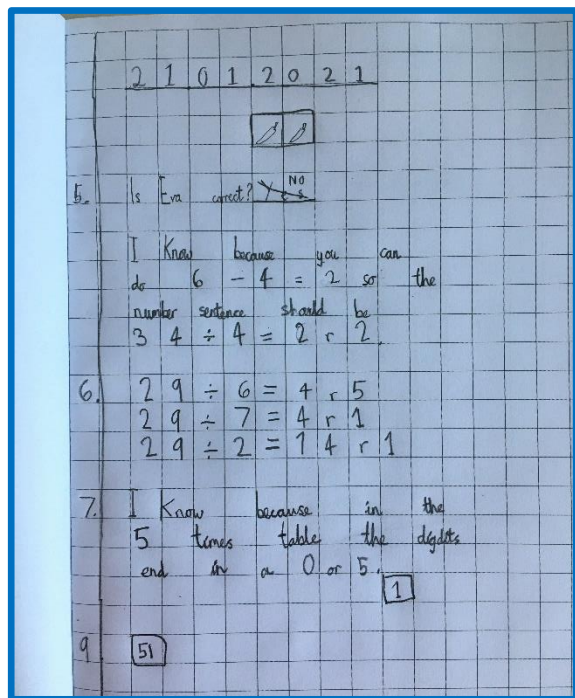 21012021
5. Is Eva correct? No
I Know because you can
do 6 - 4 = 2 so the
number sentence should be
34 ÷ 4 = 2 r 2.
6. 29 ÷ 6 = 4 r 5
29 ÷ 7 = 4 r 1
29 ÷ 2 = 14 r 1
7. I Know because in the
5 times table the
end in a 0 or 5.
1
9 51